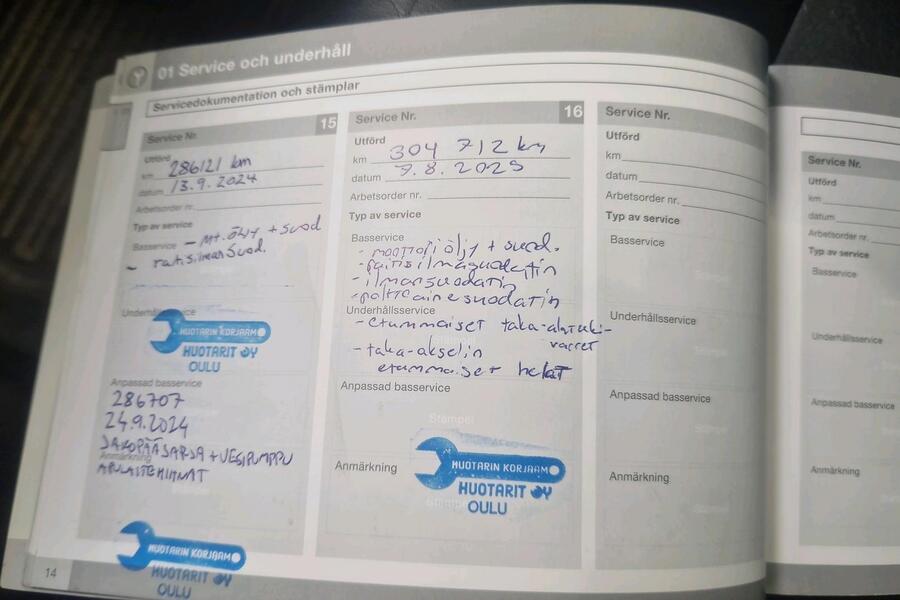 01 Service och underhåll
Servicedokumentation och stämplar
Service Nr. 15
Utförd
km 286121 km
datum 13.9.2024
Arbetsorder nr.
Typ av service
Basservice - Mt.öljy + suod
- ratisilmansuod.
Underhållsservice
HUOTARIN KORJAAMO
HUOTARIT OY
OULU
Anpassad basservice
286707
24.9.2024
JAKOPÄÄSARJA + VESIPUMPPU
Anmärkning
APULAITEHIHNAT
HUOTARIN KORJAAMO
HUOTARIT OY
OULU
14
Service Nr. 16
Utförd
km 304 712 km
datum 7.8.2025
Arbetsorder nr.
Typ av service
Basservice
- moottoriöljy + suod.
- raitisilmasuodatin
- ilmansuodatin
- polttoainesuodatin
Underhållsservice
- etummaiset taka-alatuki-
varret
- taka-akselin
etummaiset helat
Anpassad basservice
Stämpel
Anmärkning
HUOTARIN KORJAAMO
HUOTARIT OY
OULU
Service Nr.
Utförd
km
datum
Arbetsorder nr.
Typ av service
Basservice
Underhållsservice
Anpassad basservice
Anmärkning
Service Nr.
Utförd
km
datum
Arbetsorder nr.
Typ av service
Basservice
Underhållsservice
Anpassad basservice
Anmärkning